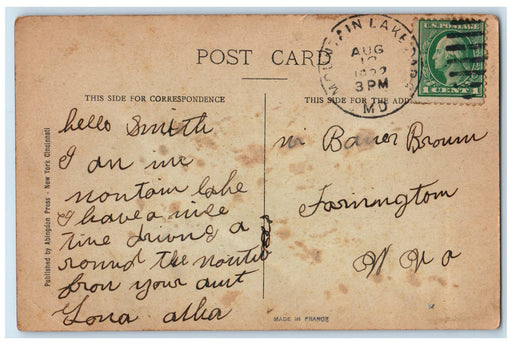 POST CARD
MOUNTAIN LAKE PARK
AUG
12
1922
3 PM
MD
U.S. POSTAGE
1 CENT 1
THIS SIDE FOR CORRESPONDENCE
THIS SIDE FOR THE ADD
hello Smith
I am in
montain lake
I have a nice
time driving a
round the montin
from your aunt
Lona
Mr Bauer Brown
Farmington
W Va
Published by Abingdon Press - New York Cincinnati
MADE IN FRANCE